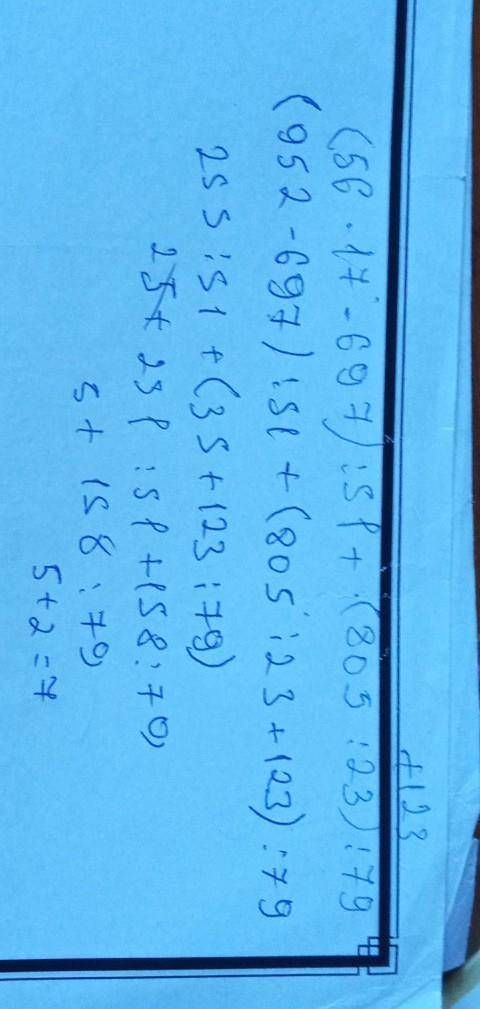 +123
(56 · 17 - 697) : 51 + (805 : 23) : 79
(952 - 697) : 51 + (805 : 23 + 123) : 79
255 : 51 + (35 + 123 : 79)
25+ 251 : 51 + 158 : 79
5 + 158 : 79
5 + 2 = 7